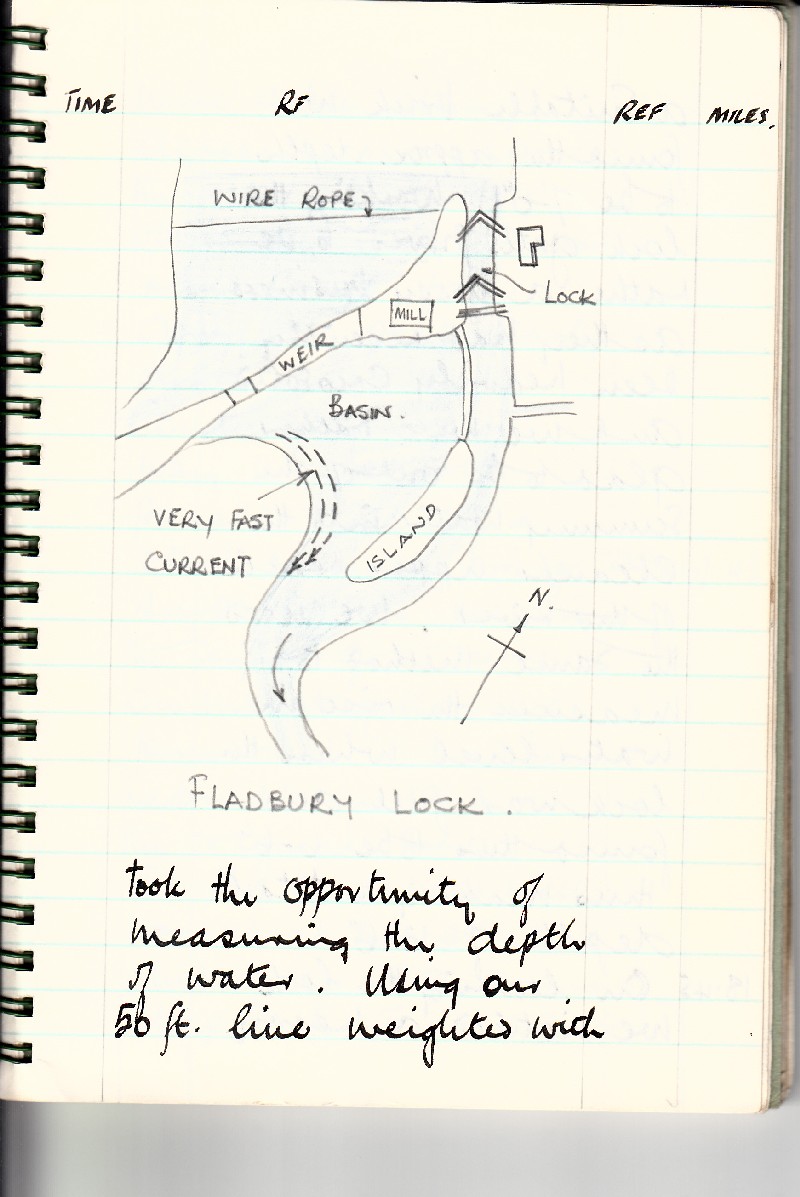 TIME RF REF MILES.
WIRE ROPE
LOCK
MILL
WEIR
BASIN.
VERY FAST
CURRENT
ISLAND
N.
FLADBURY LOCK.
took the opportunity of
measuring the depth
of water. Using our
50 ft. line weighted with